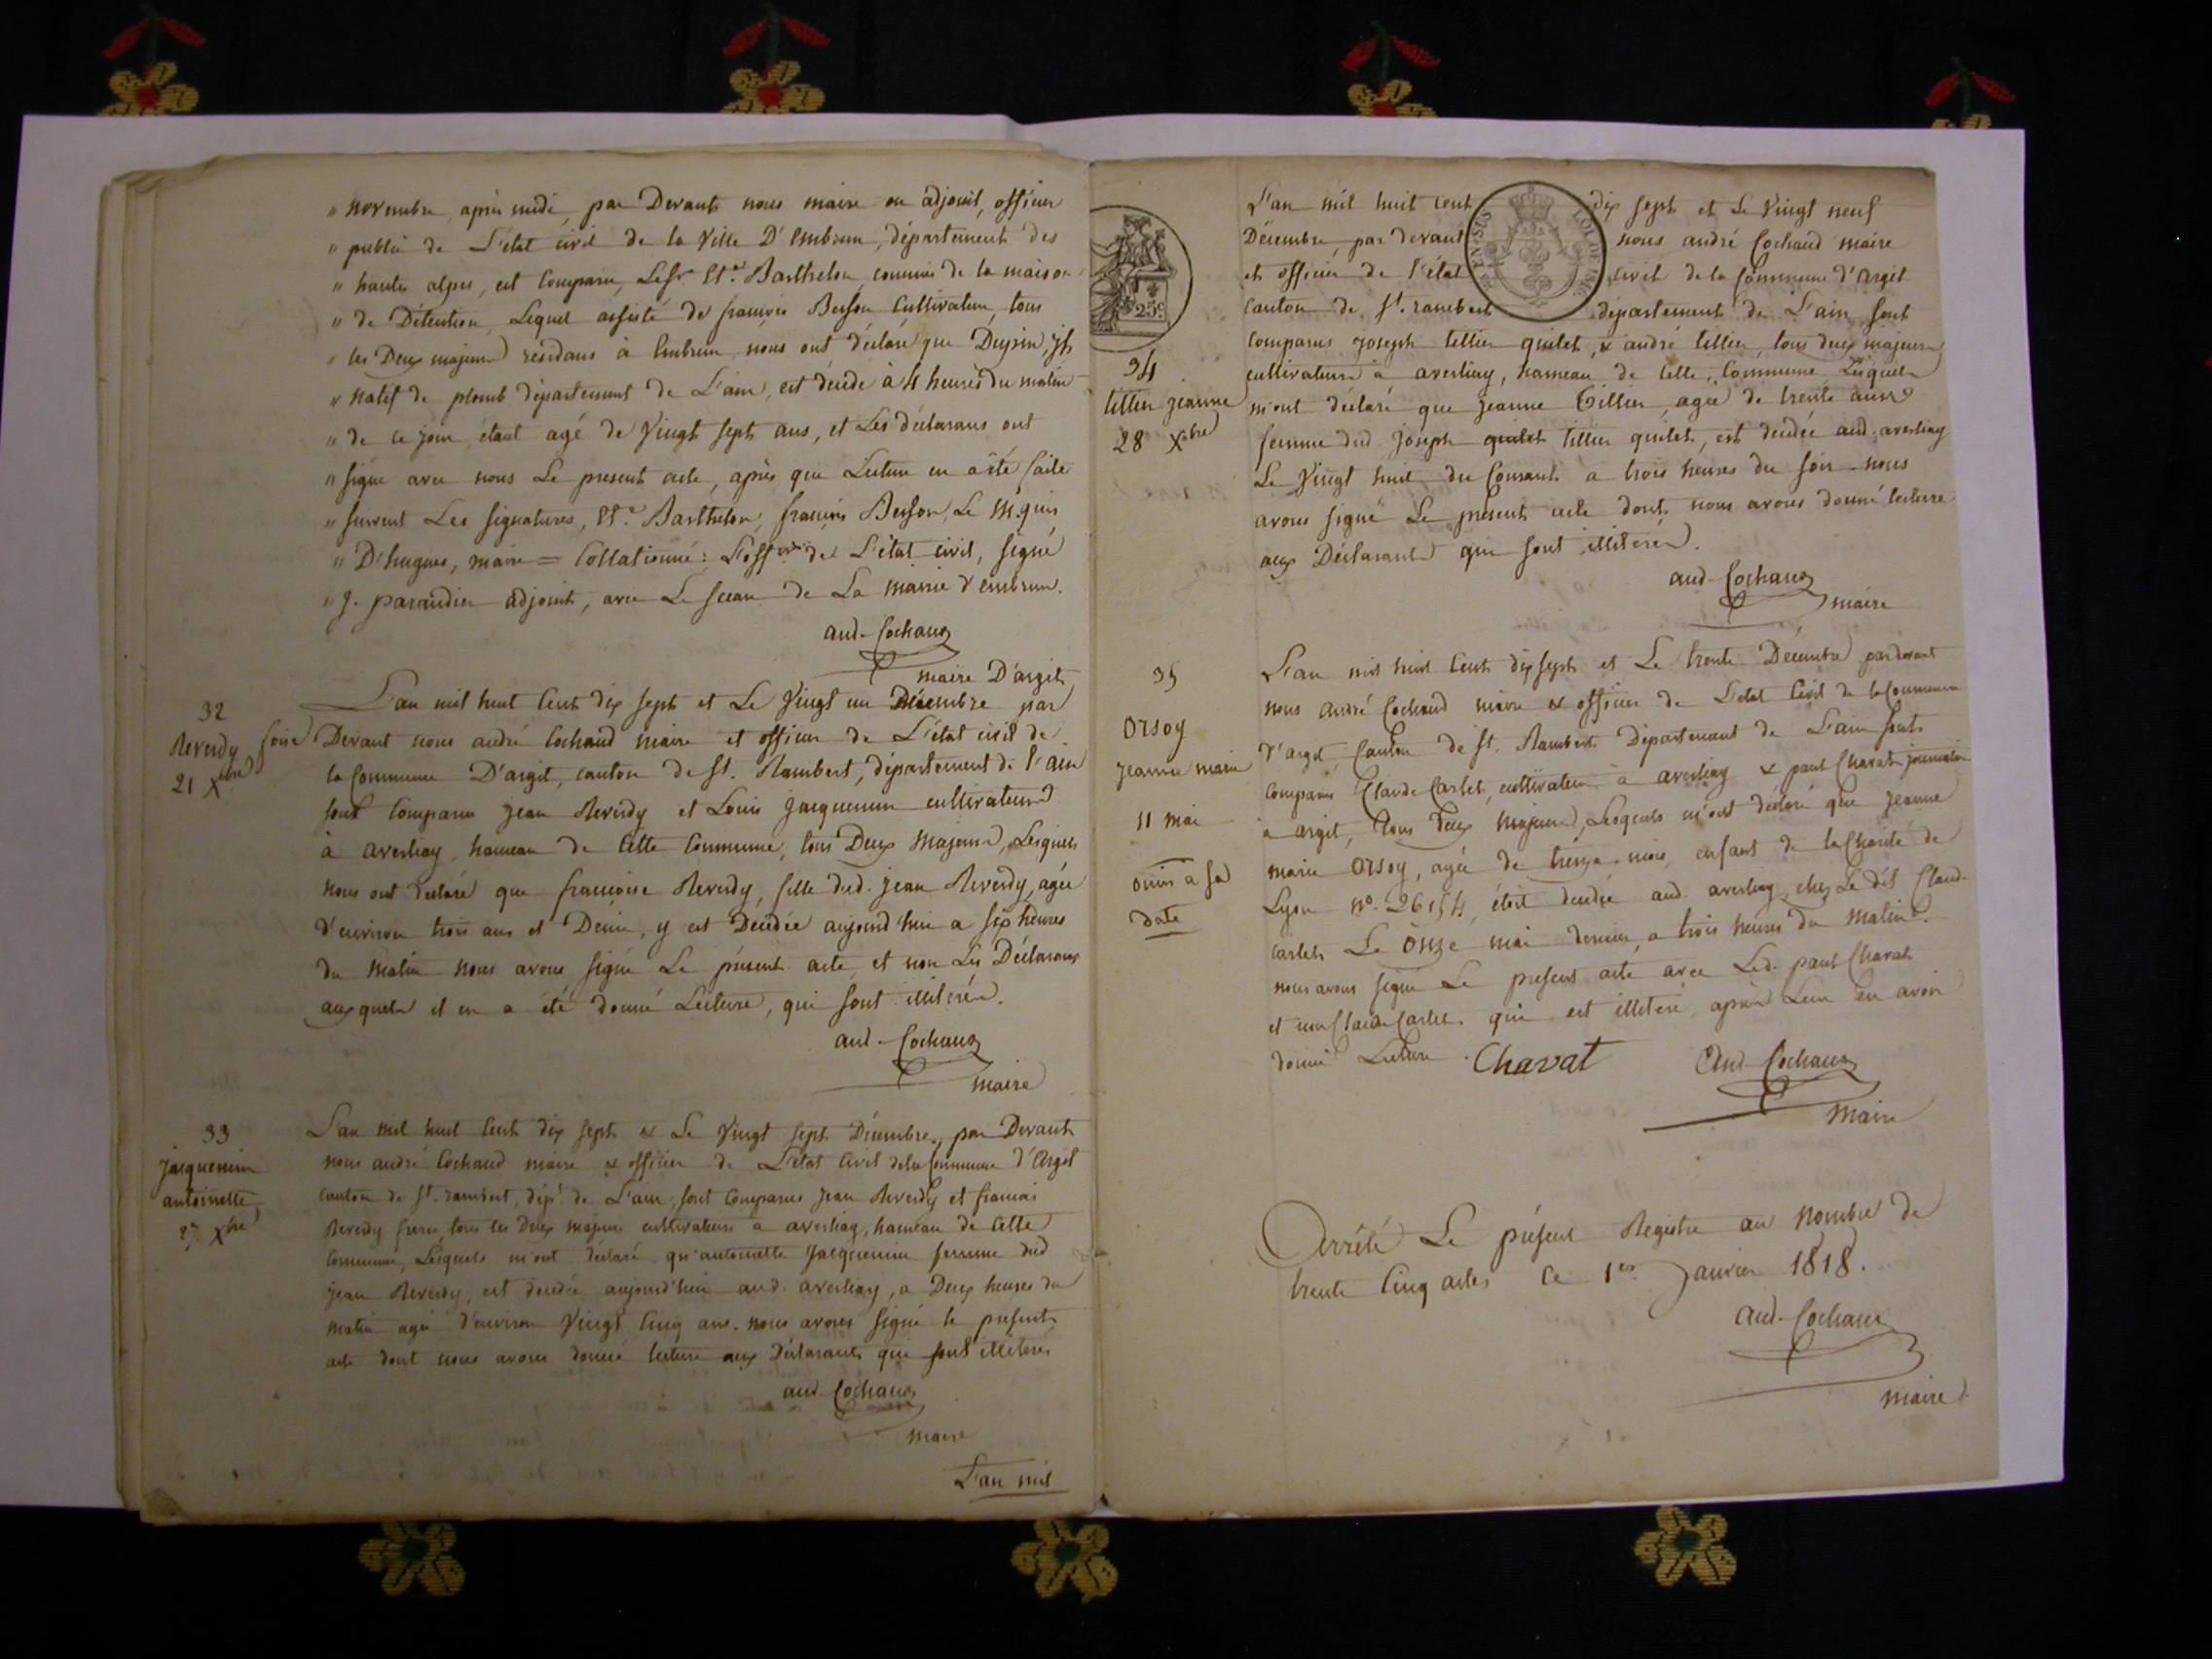 " novembre, après midi, par Devant nous maire ou adjoint, officier
" public de L'état civil de la Ville D'Embrun, département des
" hautes alpes, est Comparu, Le Sr. Et.e Barthelon, commis de la maison
" de Détention, Lequel assisté de françois Besson Cultivateur, tous
" les Deux majeurs résidans à Embrun, nous ont déclaré que Dupin, jh
" natif de plomb département de L'ain, est décédé à 4 heures du matin
" de ce jour étant agé de Vingt sept ans, et Les déclarans ont
" signé avec nous Le present acte, après que Lecture en a été faite
" suivent Les signatures, Et.e Barthelon, françois Besson, Le M.quis
" D'hugues, maire = Collationné: L'off. de L'état civil, signé
" J. parandier adjoint, avec Le sceau de La mairie d'embrun.
and. Cochaud
maire D'argit
32
Reverdy foise
21 Xbre
L'an mil huit Cent dix sept et Le Vingt un Décembre par
Devant nous andré Cochaud maire et officier de L'état civil de
la Commune D'argit, canton de St. Rambert, département de l'ain
sont Comparus jean Reverdy et Louis jacquemin cultivateurs
à averliay hameau de Cette Commune, tous Deux Majeurs, Lesquels
nous ont déclaré que francoise Reverdy, fille dud. jean Reverdy, agée
d'environ trois ans et Demi, y est Décédée aujourd'hui a six heures
du Matin nous avons signé Le présent acte et non Les Déclarans
auxquels il en a été donné Lecture, qui sont illiterés.
and. Cochaud
maire
33
jacquemin
antoinette
27 Xbre
L'an mil huit Cent dix sept & Le Vingt sept Décembre, par Devant
nous andré Cochaud maire & officier de L'état Civil de la Commune d'Argit
canton de St. rambert, dépt de L'ain, sont Comparus jean Reverdy et francois
Reverdy freres, tous les Deux majeurs cultivateurs a averliay, hameau de Cette
Commune, Lesquels m'ont déclaré qu'antoinette Jacquemin femme dud
jean Reverdy, est décédée aujourd'hui aud. averliay, a Deux heures du
matin agée d'environ Vingt Cinq ans. nous avons signé le present
acte dont nous avons donné lecture aux Déclarants qui sont illiterés
and. Cochaud
maire
L'an mil
25c
34
tillier jeanne
28 Xbre
L'an mil huit Cent dix sept et Le Vingt neuf
Décembre par devant nous andré Cochaud maire
et officier de l'état civil de la Commune d'Argit
Canton de St. rambert département de L'ain sont
comparus joseph tillier quilet, & andré tillier, tous deux majeurs
cultivateurs a averliay, hameau de Cette Commune Lesquels
m'ont déclaré que jeanne tillier, agée de trente ans
femme dud. joseph quilet tillier quilet, est decédée aud. averliay
Le Vingt huit du Courant a trois heures du soir nous
avons signé Le présent acte dont nous avons donné lecture
aux Déclarants qui sont illiterés.
and. Cochaud
maire
35
Orsoy
jeanne marie
11 mai
omis a sa
date
L'an mil huit Cent dix sept et Le trente Décembre par devant
nous andré Cochaud maire & officier de L'état Civil de la Commune
d'argit, Canton de St. Rambert Département de L'ain sont
comparus Claude Carlet, cultivateur à averliay & paul Chavat journalier
à argit, tous deux majeurs, Lesquels m'ont déclaré que jeanne
marie Orsoy, agée de treize mois, enfant de la Charité de
Lyon no. 26154, étoit decédée aud. averliay chez Le dit Claud.
Carlet Le Onze mai dernier, a trois heures du Matin.
nous avons signé Le present acte avec Led. paul Chavat
et non Claude Carlet qui est illiteré après Leur en avoir
donné Lecture. Chavat and. Cochaud
Maire
Arrêté Le présent Registre au nombre de
trente Cinq actes Ce 1er. Janvier 1818.
and. Cochaud
maire